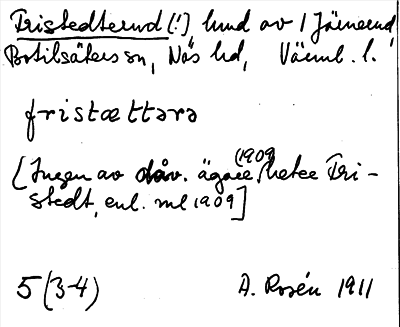 Fristedtterud (!) hmd av 1 Järnerud,
Botilsäters sn, Näs hd, Värml. l.
fristættərə
[Ingen av dåv. ägare (1909) heter Fri-
stedt, enl. ml 1909]
5 (3-4) A. Rosén 1911